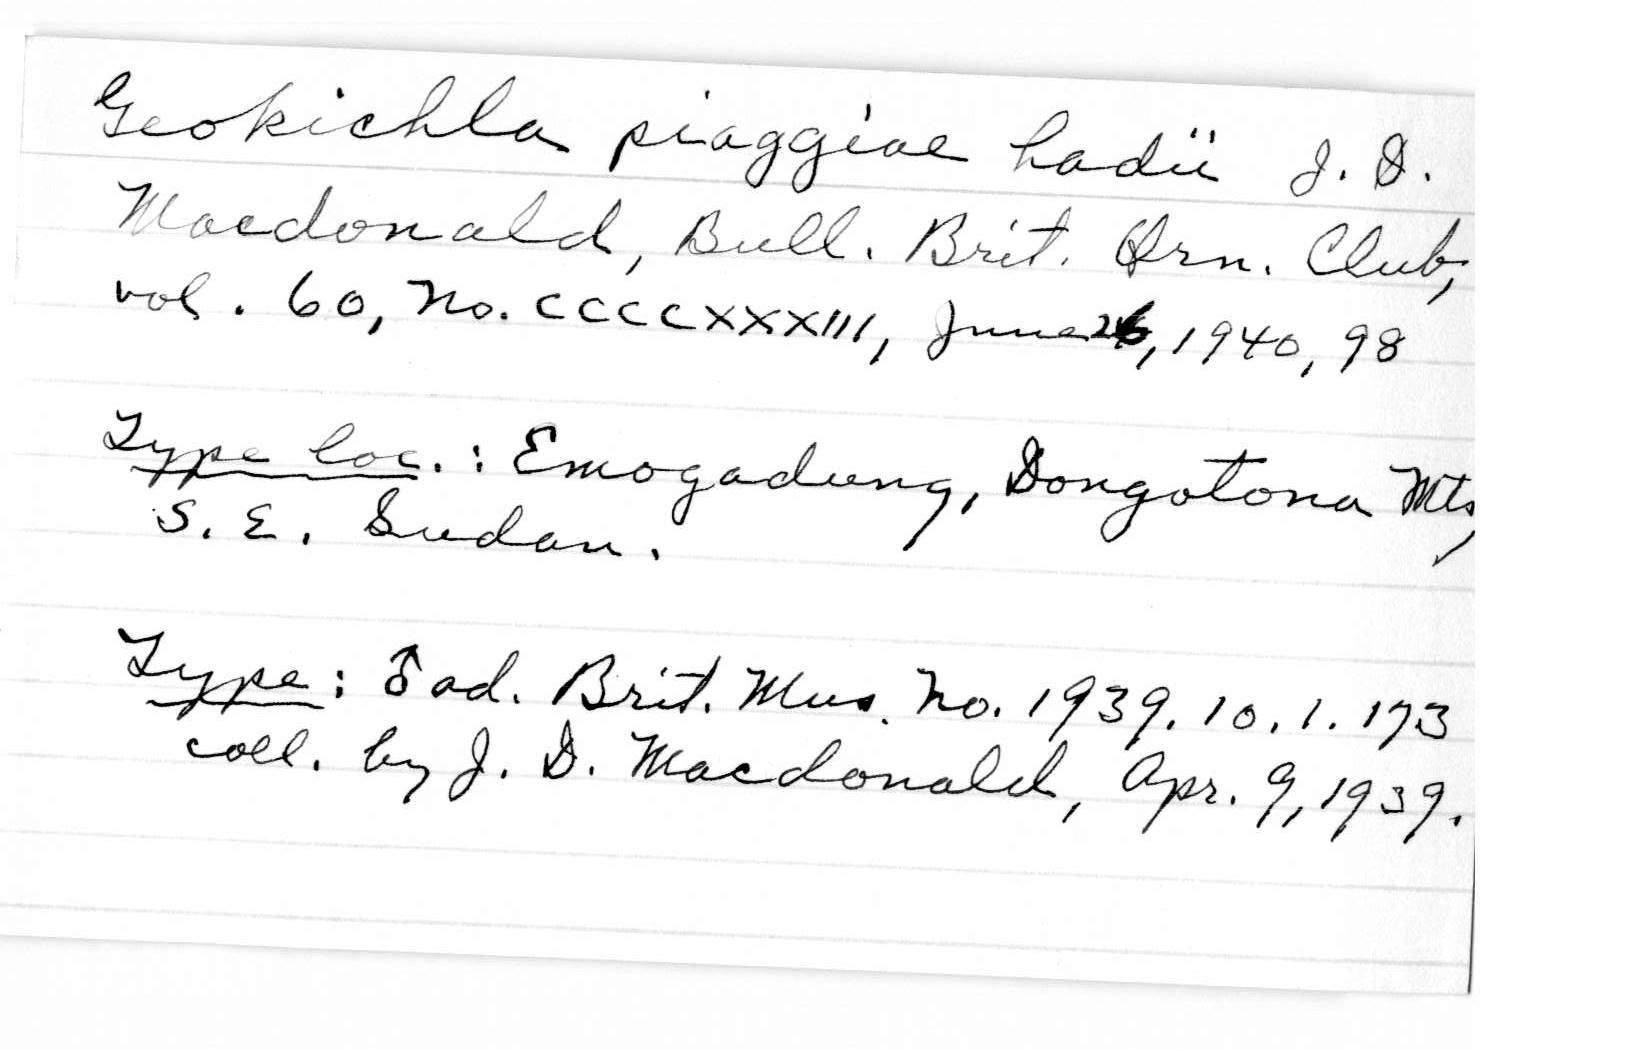 Geokichla piaggiae hadii J. D.
Macdonald, Bull. Brit. Orn. Club,
vol. 60, No. CCCCXXXIII, June 26, 1940, 98
Type loc.: Emogadung, Dongotona Mts,
S. E. Sudan.
Type: ♂ ad. Brit. Mus. No. 1939.10.1.173
coll. by J. D. Macdonald, Apr. 9, 1939.